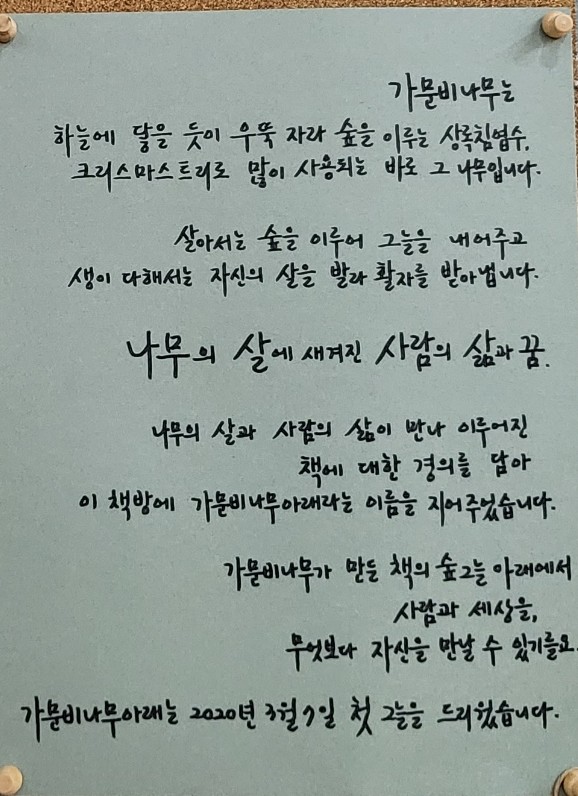 가문비나무는
하늘에 닿을 듯이 우뚝 자라 숲을 이루는 상록침엽수,
크리스마스트리로 많이 사용되는 바로 그 나무입니다.
살아서는 숲을 이루어 그늘을 내어주고
생이 다해서는 자신의 살을 발라 활자를 받아냅니다.
나무의 살에 새겨진 사람의 삶과 꿈.
나무의 살과 사람의 삶이 만나 이루어진
책에 대한 경의를 담아
이 책방에 가문비나무아래라는 이름을 지어주었습니다.
가문비나무가 만든 책의 숲그늘 아래에서
사람과 세상을,
무엇보다 자신을 만날 수 있기를요.
가문비나무아래는 2020년 3월 7일 첫 그늘을 드리웠습니다.